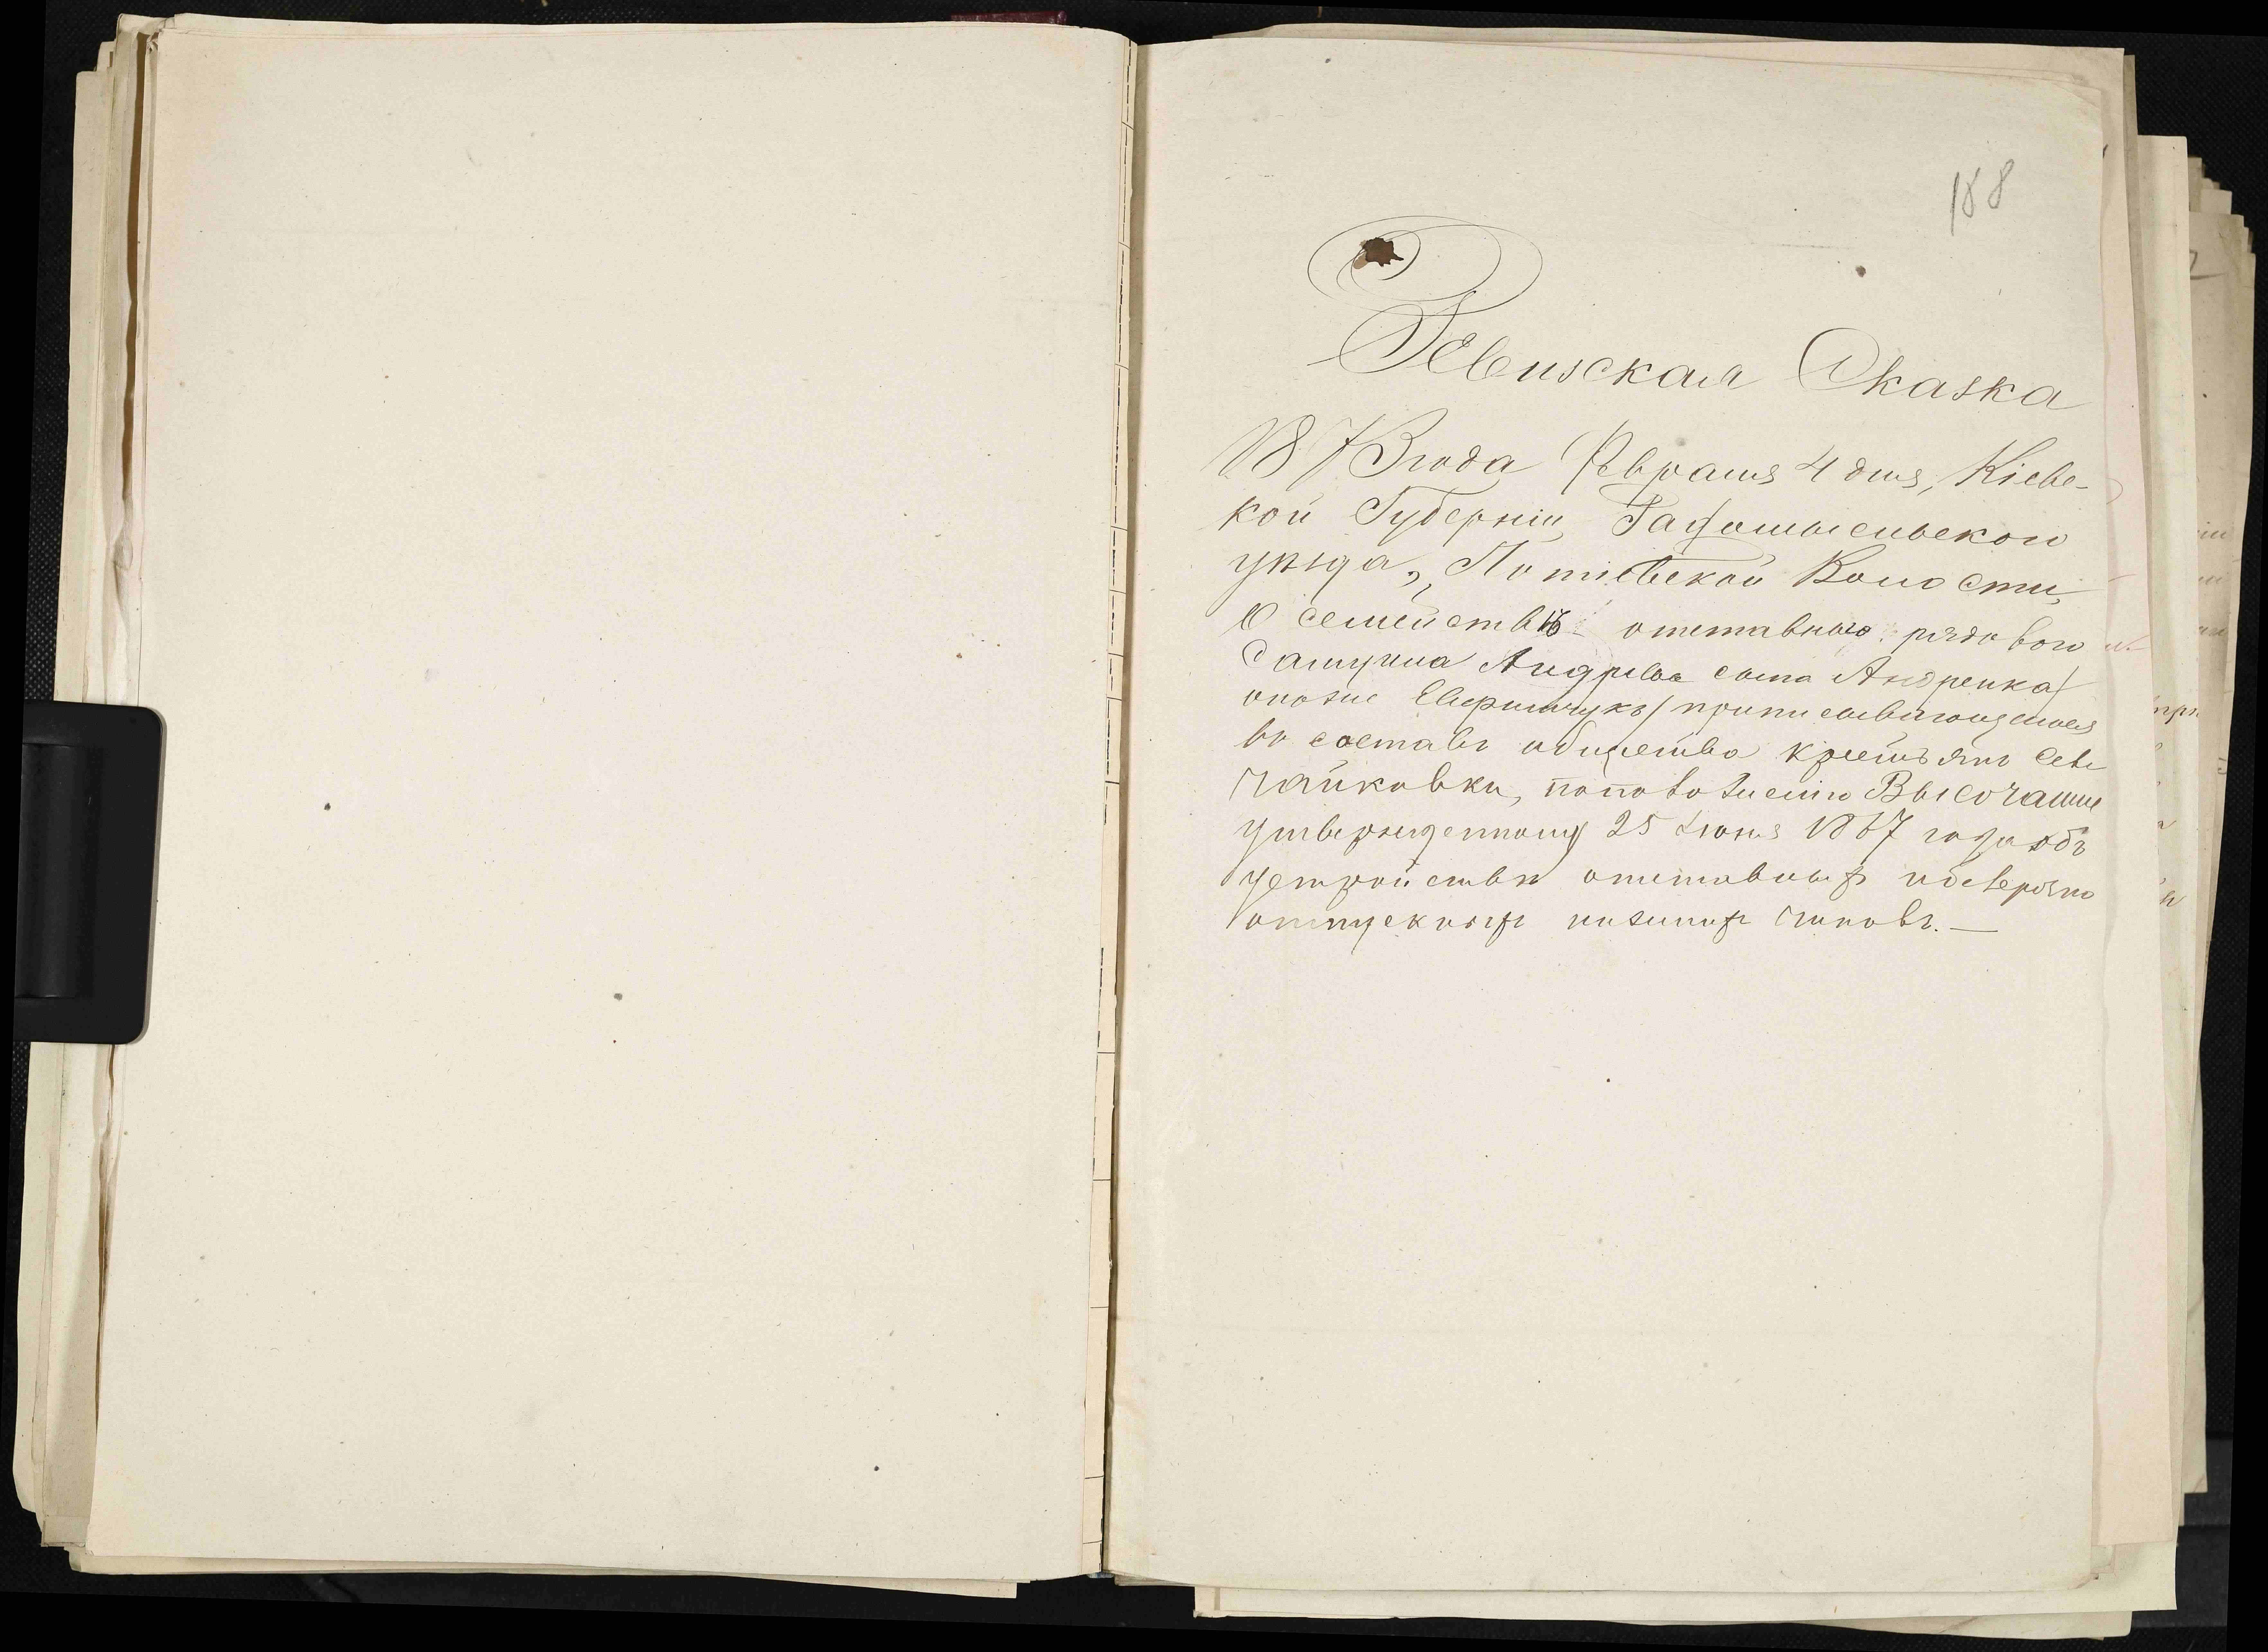 188
Ревизская Сказка
1873 года Февраля 4 дня, Кіевс-
кой Губерніи, Радомысльскаго
уѣзда, Потіевской Волости,
О семействѣ отставнаго рядоваго
Андреева сына Андрейка/
онъже приписывающемся
въ составъ общества крестьянъ села
Чайковки, по положенію Высочайше
утвержденному 25 Іюня 1867 года объ
устройствѣ отставныхъ и безсрочно
отпускныхъ нижнихъ чиновъ.—